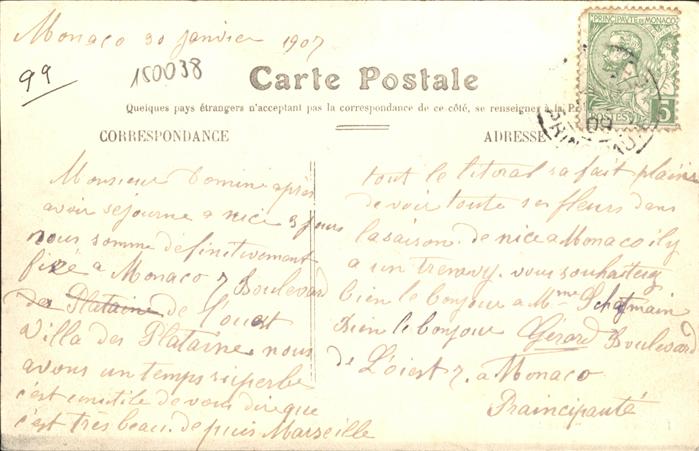 Monaco 30 janvier 1907
99
150038
Carte Postale
Quelques pays étrangers n'acceptant pas la correspondance de ce côté, se renseigner à la
CORRESPONDANCE
ADRESSE
PRINCIPAUTÉ DE MONACO
POSTES
5
Monsieur Domine après
avoir séjourné a nice 3 jours
nous somme définitivement
fixé a Monaco 7 Boulevard
des Plataine de l'ouest
Villa des Plataine nous
avons un temps superbe
c'est inutile de vous dire que
c'est très beau. depuis Marseille
tout le litoral sa fait plaisir
de voir toute ses fleurs dans
la saison. de nice a Monaco il y
a un vous souhaiterez
bien le bonjour a Mme
Bien le bonjour Gérard Boulevard
de L'oiest 7. a Monaco
Prainci­pauté